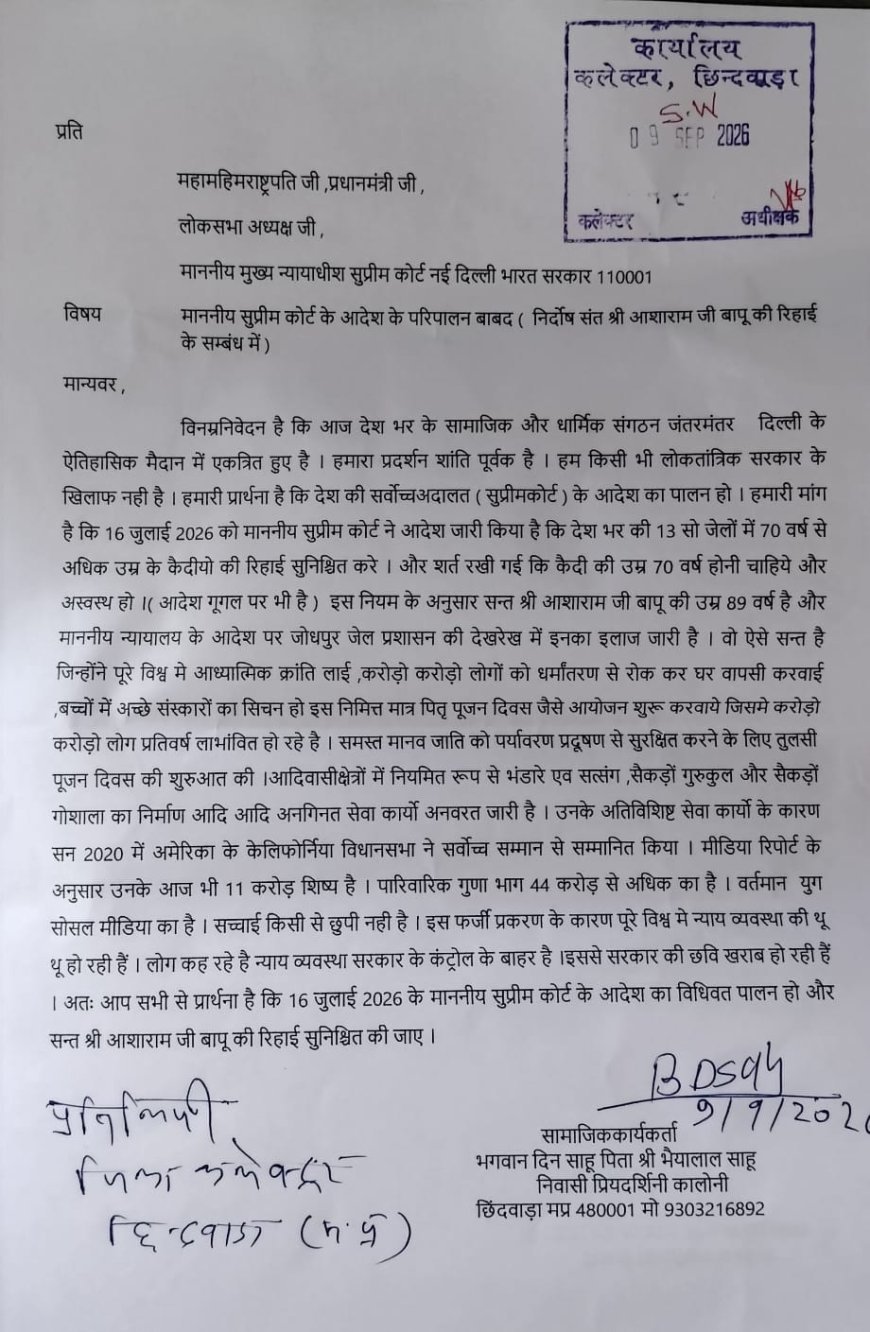 कार्यालय
कलेक्टर, छिन्दवाड़ा
S.W
09 SEP 2026
कलेक्टर अधीक्षक
प्रति
महामहिमराष्ट्रपति जी ,प्रधानमंत्री जी ,
लोकसभा अध्यक्ष जी ,
माननीय मुख्य न्यायाधीश सुप्रीम कोर्ट नई दिल्ली भारत सरकार 110001
विषय माननीय सुप्रीम कोर्ट के आदेश के परिपालन बाबद ( निर्दोष संत श्री आशाराम जी बापू की रिहाई
के सम्बंध में )
मान्यवर ,
विनम्रनिवेदन है कि आज देश भर के सामाजिक और धार्मिक संगठन जंतरमंतर दिल्ली के
ऐतिहासिक मैदान में एकत्रित हुए है । हमारा प्रदर्शन शांति पूर्वक है । हम किसी भी लोकतांत्रिक सरकार के
खिलाफ नही है । हमारी प्रार्थना है कि देश की सर्वोच्चअदालत ( सुप्रीमकोर्ट ) के आदेश का पालन हो । हमारी मांग
है कि 16 जुलाई 2026 को माननीय सुप्रीम कोर्ट ने आदेश जारी किया है कि देश भर की 13 सो जेलों में 70 वर्ष से
अधिक उम्र के कैदीयो की रिहाई सुनिश्चित करे । और शर्त रखी गई कि कैदी की उम्र 70 वर्ष होनी चाहिये और
अस्वस्थ हो ।( आदेश गूगल पर भी है ) इस नियम के अनुसार सन्त श्री आशाराम जी बापू की उम्र 89 वर्ष है और
माननीय न्यायालय के आदेश पर जोधपुर जेल प्रशासन की देखरेख में इनका इलाज जारी है । वो ऐसे सन्त है
जिन्होंने पूरे विश्व मे आध्यात्मिक क्रांति लाई ,करोड़ो करोड़ो लोगों को धर्मांतरण से रोक कर घर वापसी करवाई
,बच्चों में अच्छे संस्कारों का सिचन हो इस निमित्त मात्र पितृ पूजन दिवस जैसे आयोजन शुरू करवाये जिसमे करोड़ो
करोड़ो लोग प्रतिवर्ष लाभांवित हो रहे है । समस्त मानव जाति को पर्यावरण प्रदूषण से सुरक्षित करने के लिए तुलसी
पूजन दिवस की शुरुआत की ।आदिवासीक्षेत्रों में नियमित रूप से भंडारे एव सत्संग ,सैकड़ों गुरुकुल और सैकड़ों
गोशाला का निर्माण आदि आदि अनगिनत सेवा कार्यो अनवरत जारी है । उनके अतिविशिष्ट सेवा कार्यो के कारण
सन 2020 में अमेरिका के केलिफोर्निया विधानसभा ने सर्वोच्च सम्मान से सम्मानित किया । मीडिया रिपोर्ट के
अनुसार उनके आज भी 11 करोड़ शिष्य है । पारिवारिक गुणा भाग 44 करोड़ से अधिक का है । वर्तमान युग
सोसल मीडिया का है । सच्चाई किसी से छुपी नही है । इस फर्जी प्रकरण के कारण पूरे विश्व मे न्याय व्यवस्था की थू
थू हो रही हैं । लोग कह रहे है न्याय व्यवस्था सरकार के कंट्रोल के बाहर है ।इससे सरकार की छवि खराब हो रही हैं
। अतः आप सभी से प्रार्थना है कि 16 जुलाई 2026 के माननीय सुप्रीम कोर्ट के आदेश का विधिवत पालन हो और
सन्त श्री आशाराम जी बापू की रिहाई सुनिश्चित की जाए ।
9/9/202
सामाजिककार्यकर्ता
भगवान दिन साहू पिता श्री भैयालाल साहू
निवासी प्रियदर्शिनी कालोनी
छिंदवाड़ा मप्र 480001 मो 9303216892
प्रतिलिपी
जिला कलेक्टर
छिन्दवाडा (म.प्र)